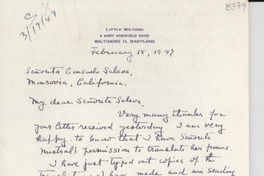 8379
C
3/19/47
LITTLE MELFORD
BALTIMORE 12, MARYLAND
February 18, 1947
Señorita Consuelo Saleva,
Monrovia, California.
My dear Señorita Saleva,
Very many thanks for
your letter received yesterday. I am very
happy to know that I have Señorita
Mistral's permission to translate her poems.
I have just typed out copies of the
I have made and am sending